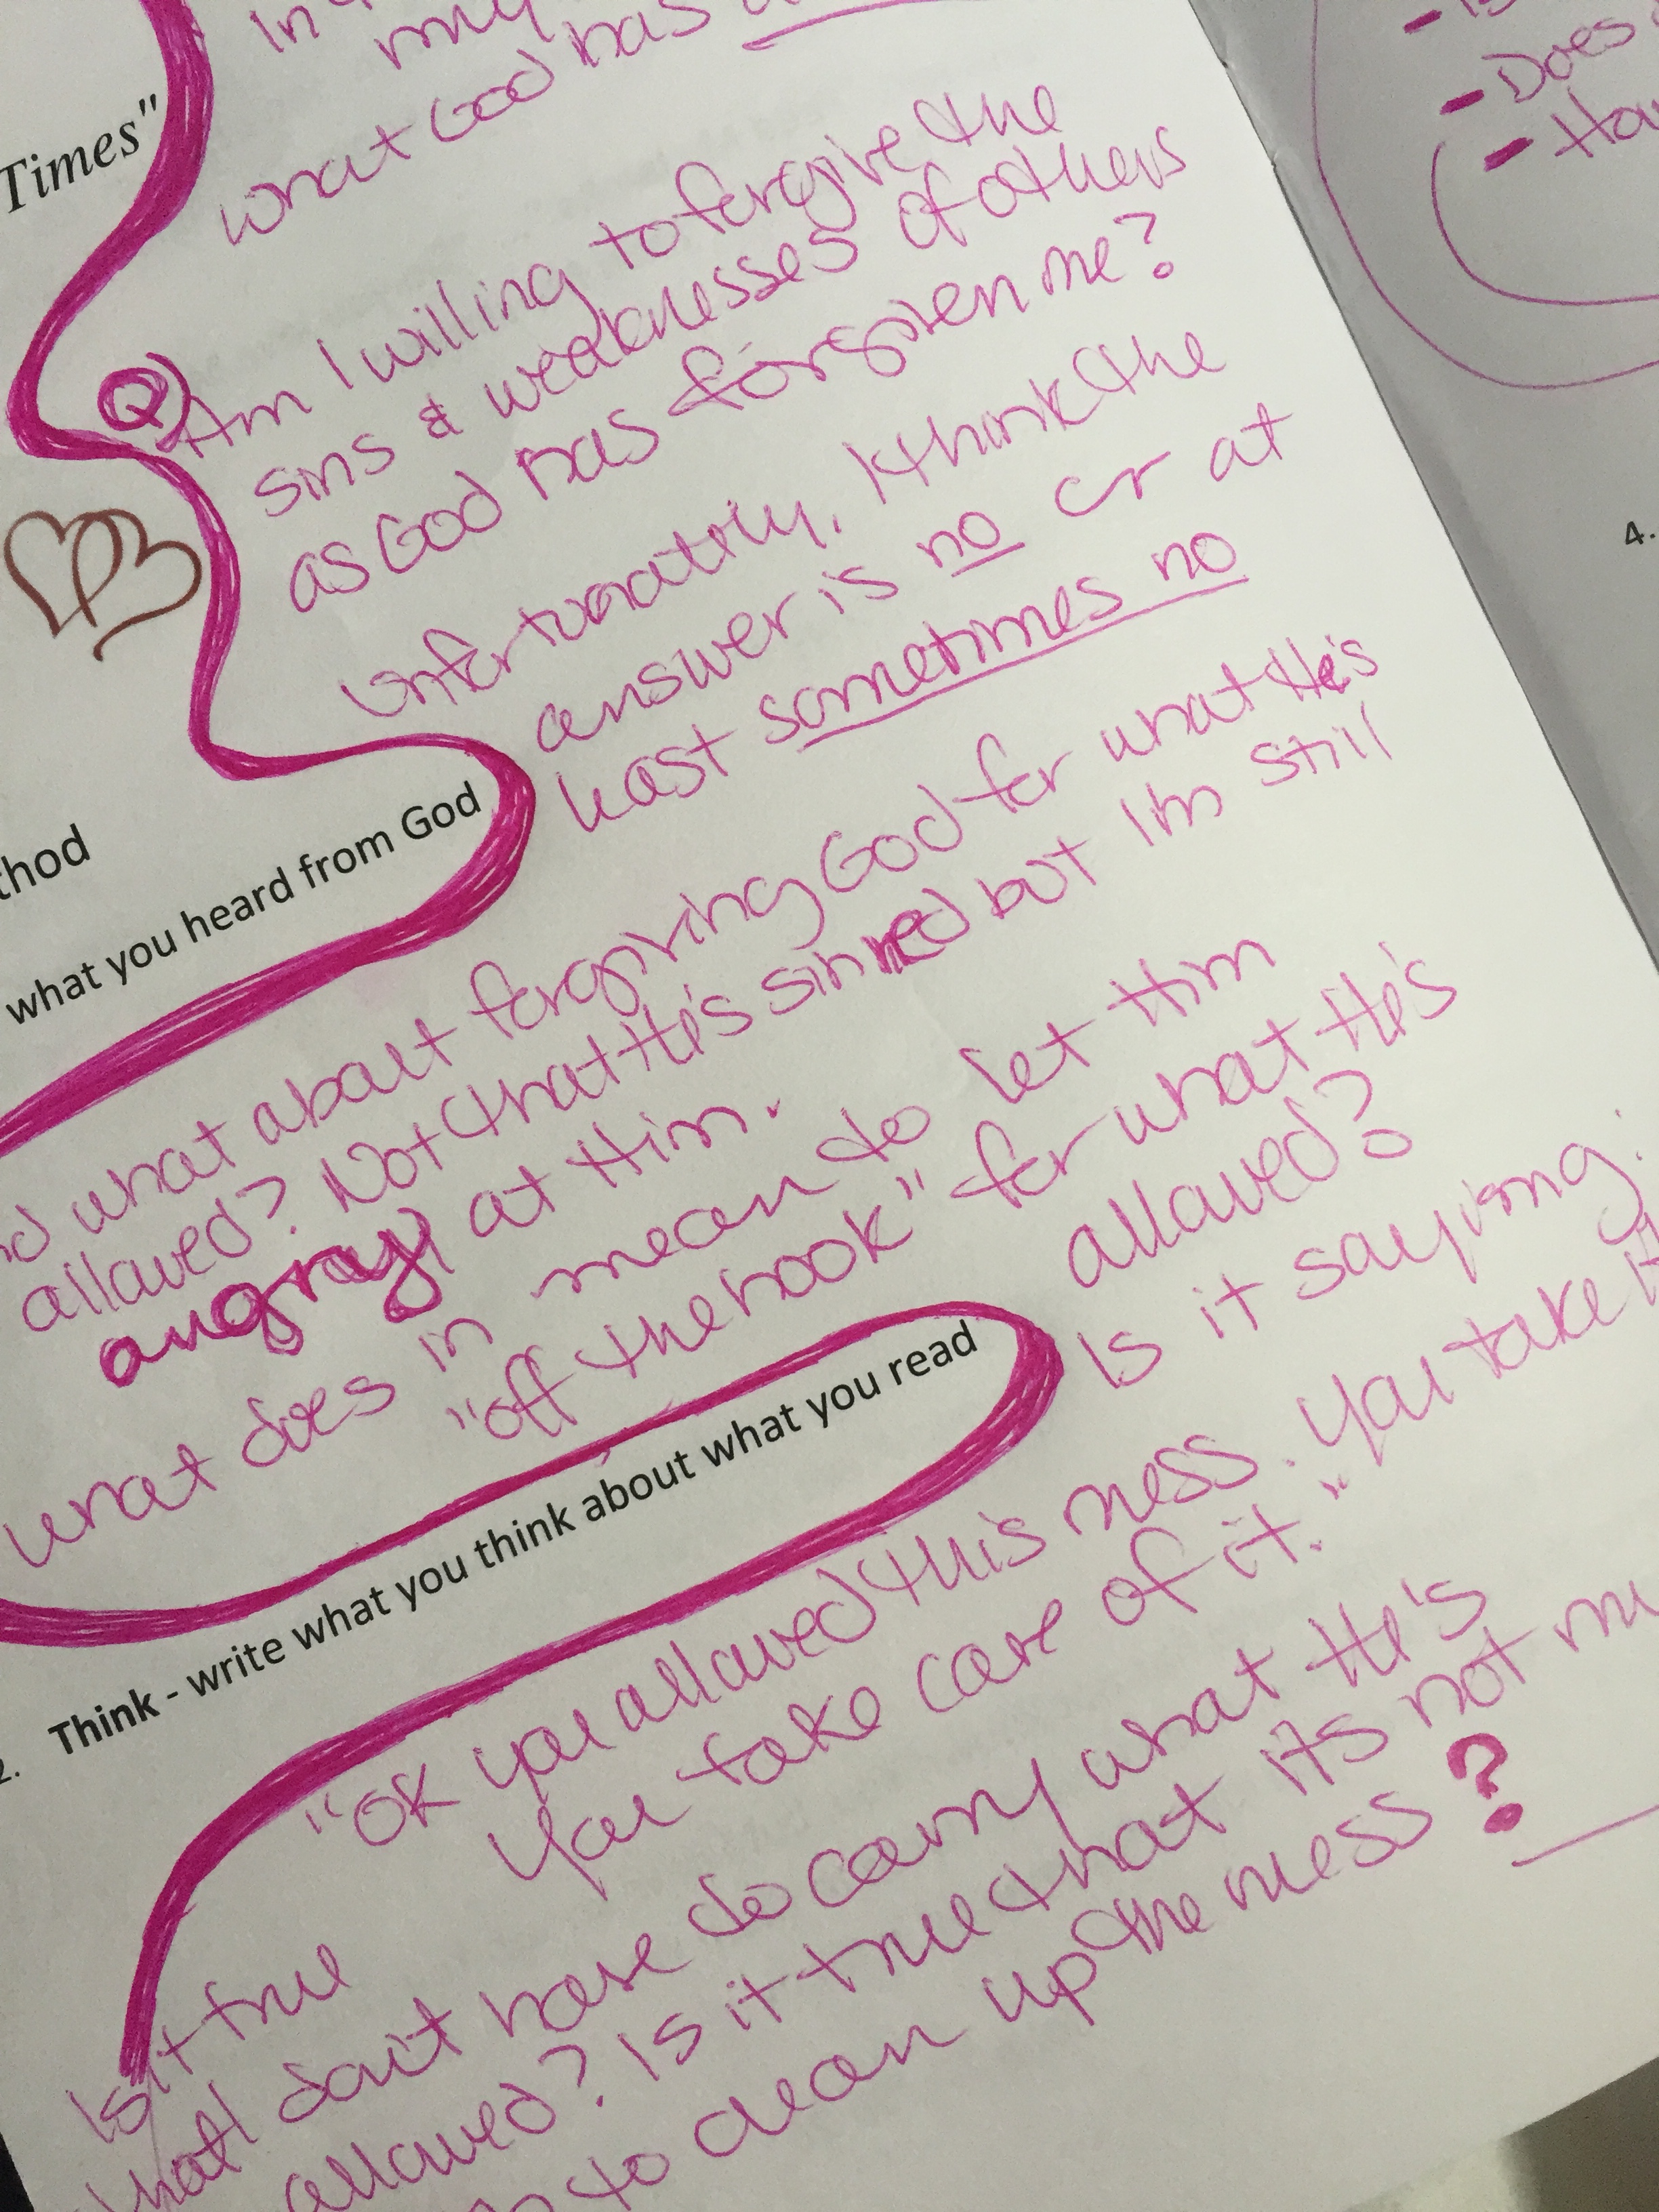 my
what God has
Times"
Q Am I willing to forgive the
sins & weaknesses of others
as God has forgiven me?
Unfortunately, I think the
answer is no or at
least sometimes no
thod
what you heard from God
what about forgiving God for what He's
allowed? Not that He's sinned but I'm still
angry at Him.
what does it mean to let Him
"off the hook" for what He's
allowed?
Is it saying:
2. Think - write what you think about what you read
"OK you allowed this mess. You take it
You take care of it."
Is it true
that I don't have to carry what He's
allowed? Is it true that its not my
to clean up the mess?
- Does
4.